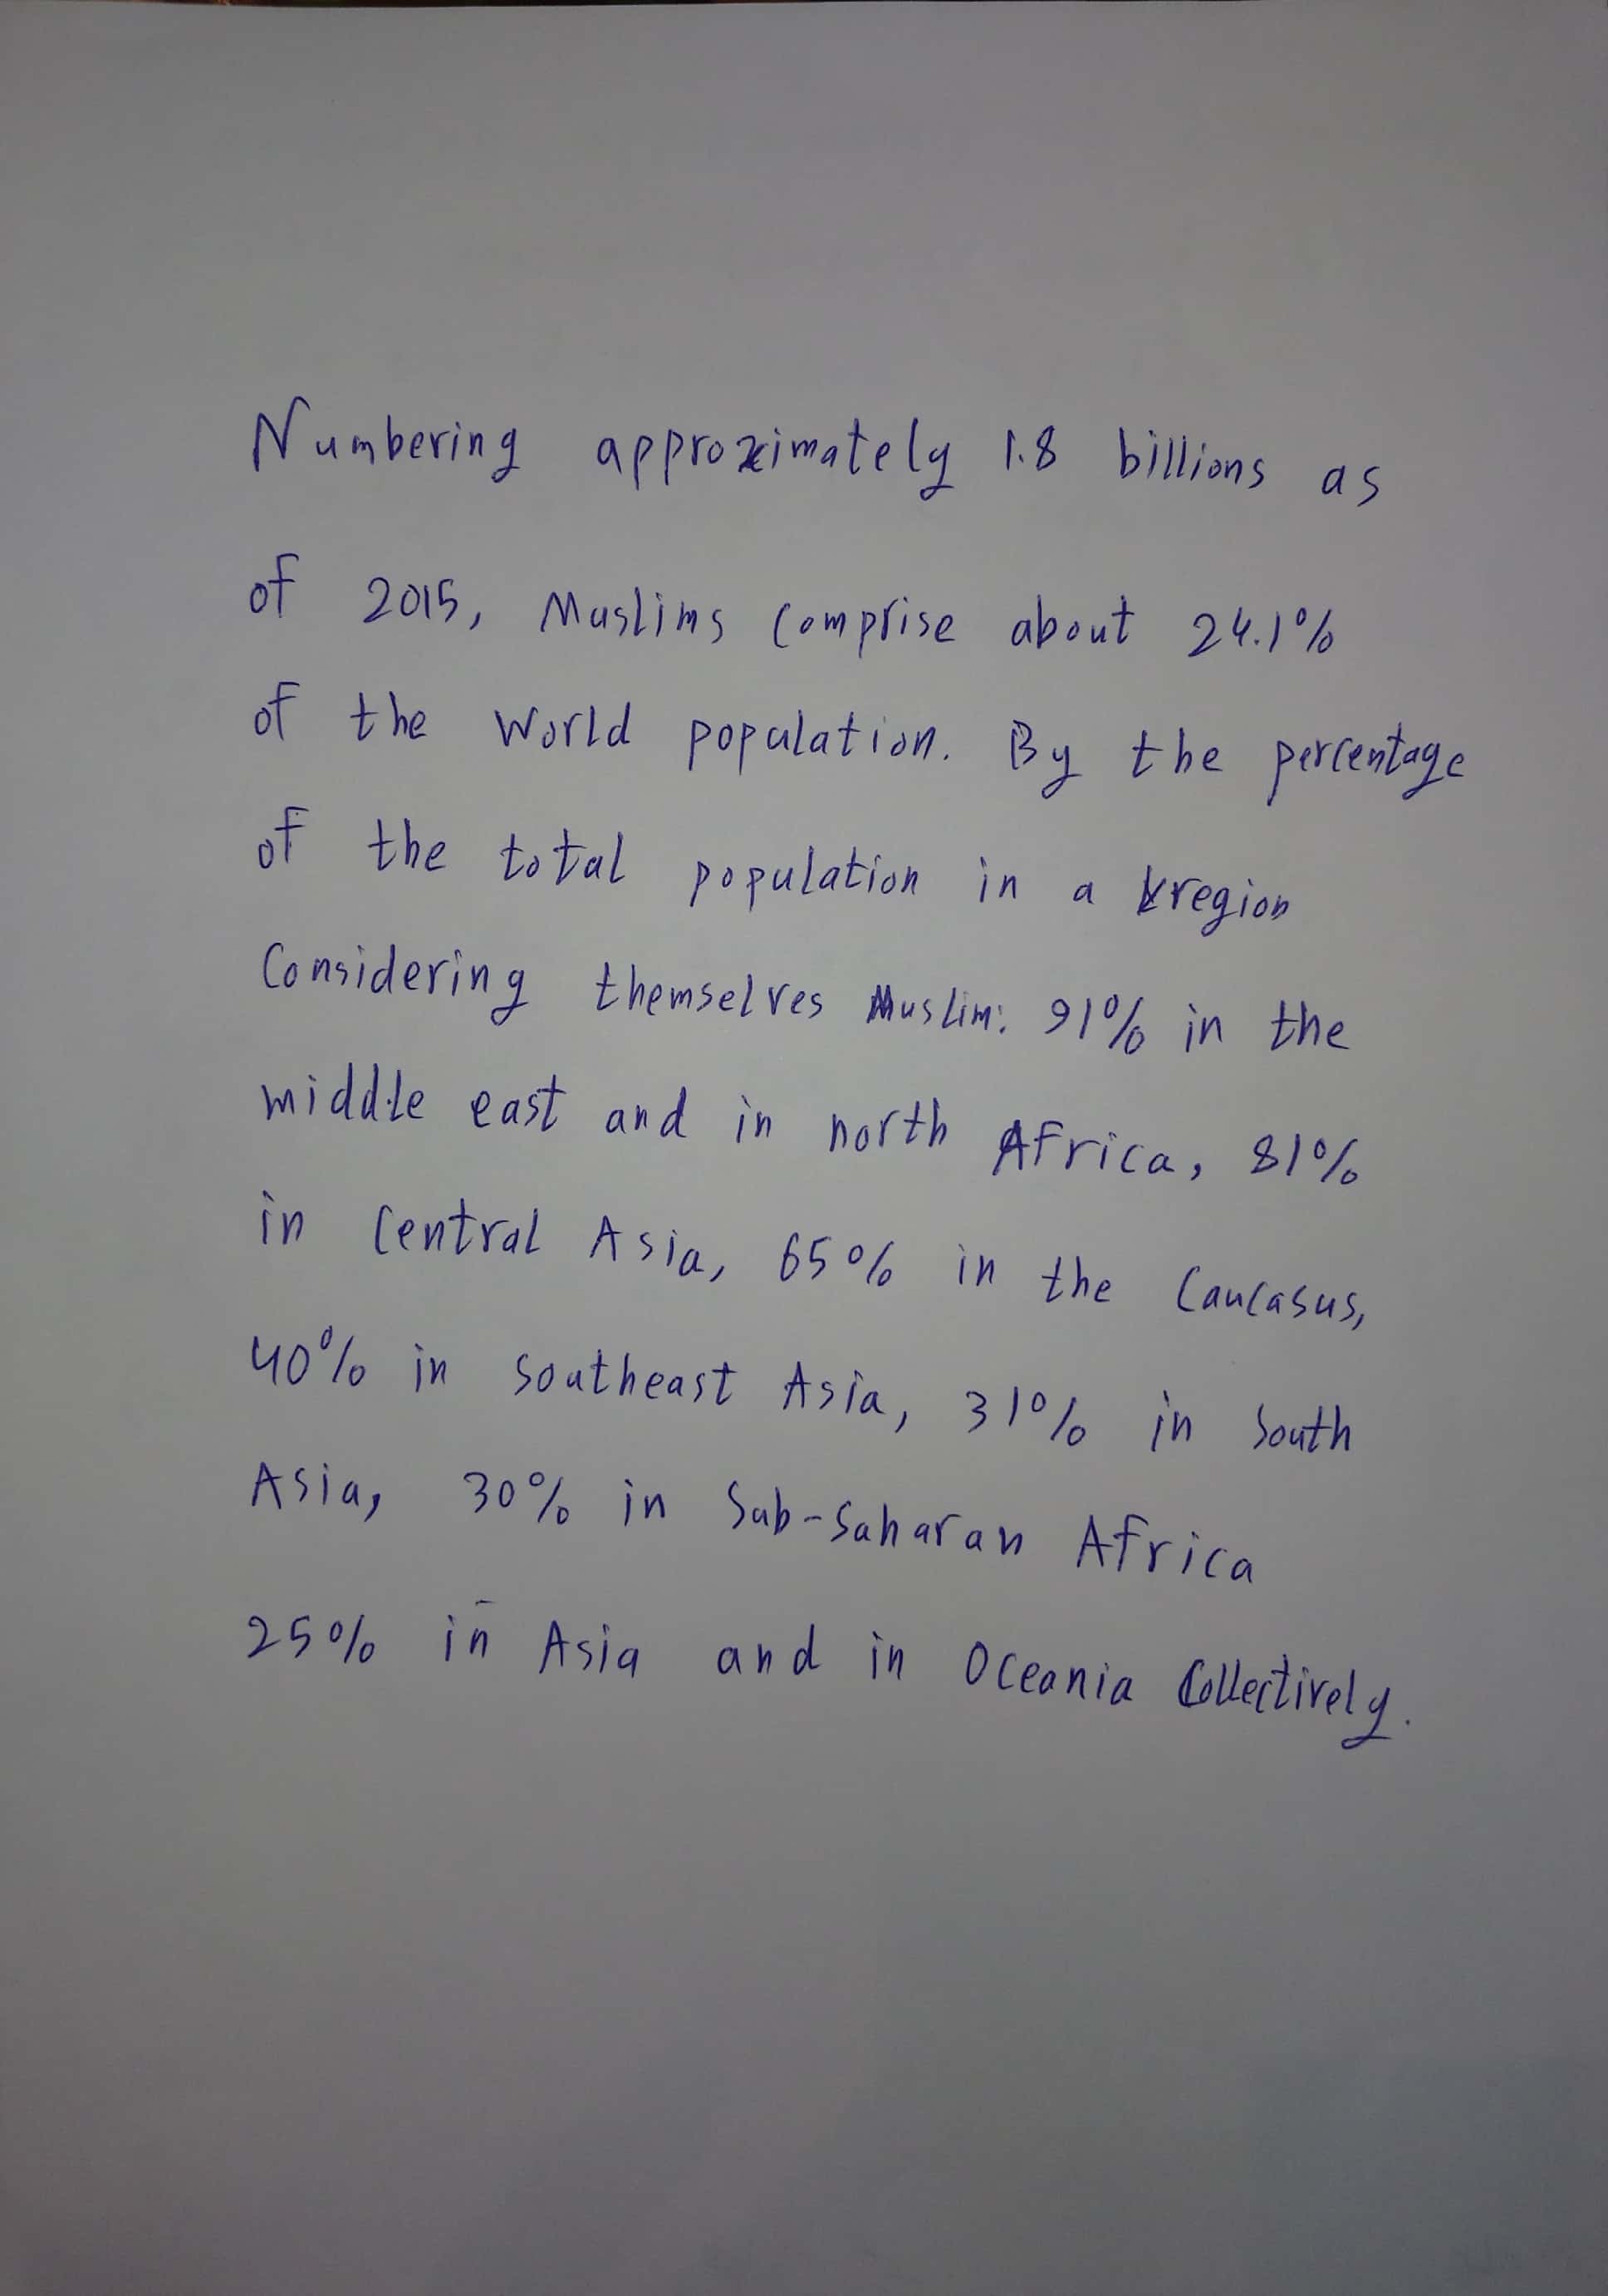 Numbering approximately 1.8 billions as
of 2015, Muslims comprise about 24.1%
of the world population. By the percentage
of the total population in a region
Considering themselves Muslim: 91% in the
middle east and in north Africa, 81%
in Central Asia, 65% in the Caucasus,
40% in southeast Asia, 31% in South
Asia, 30% in Sub-Saharan Africa
25% in Asia and in Oceania Collectively.